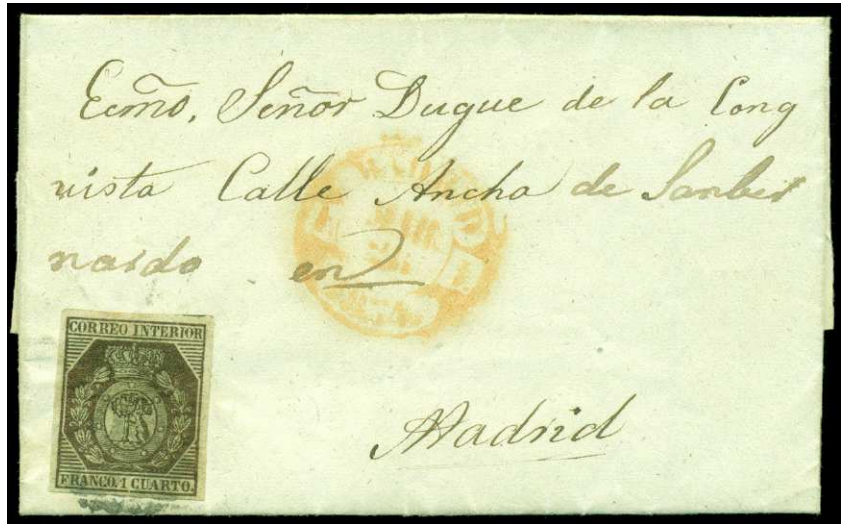 Ecmõ, Señor Duque de la Cong
uista Calle Ancha de Sanber
nardo en
CORREO INTERIOR
FRANCO. 1 CUARTO.
Madrid